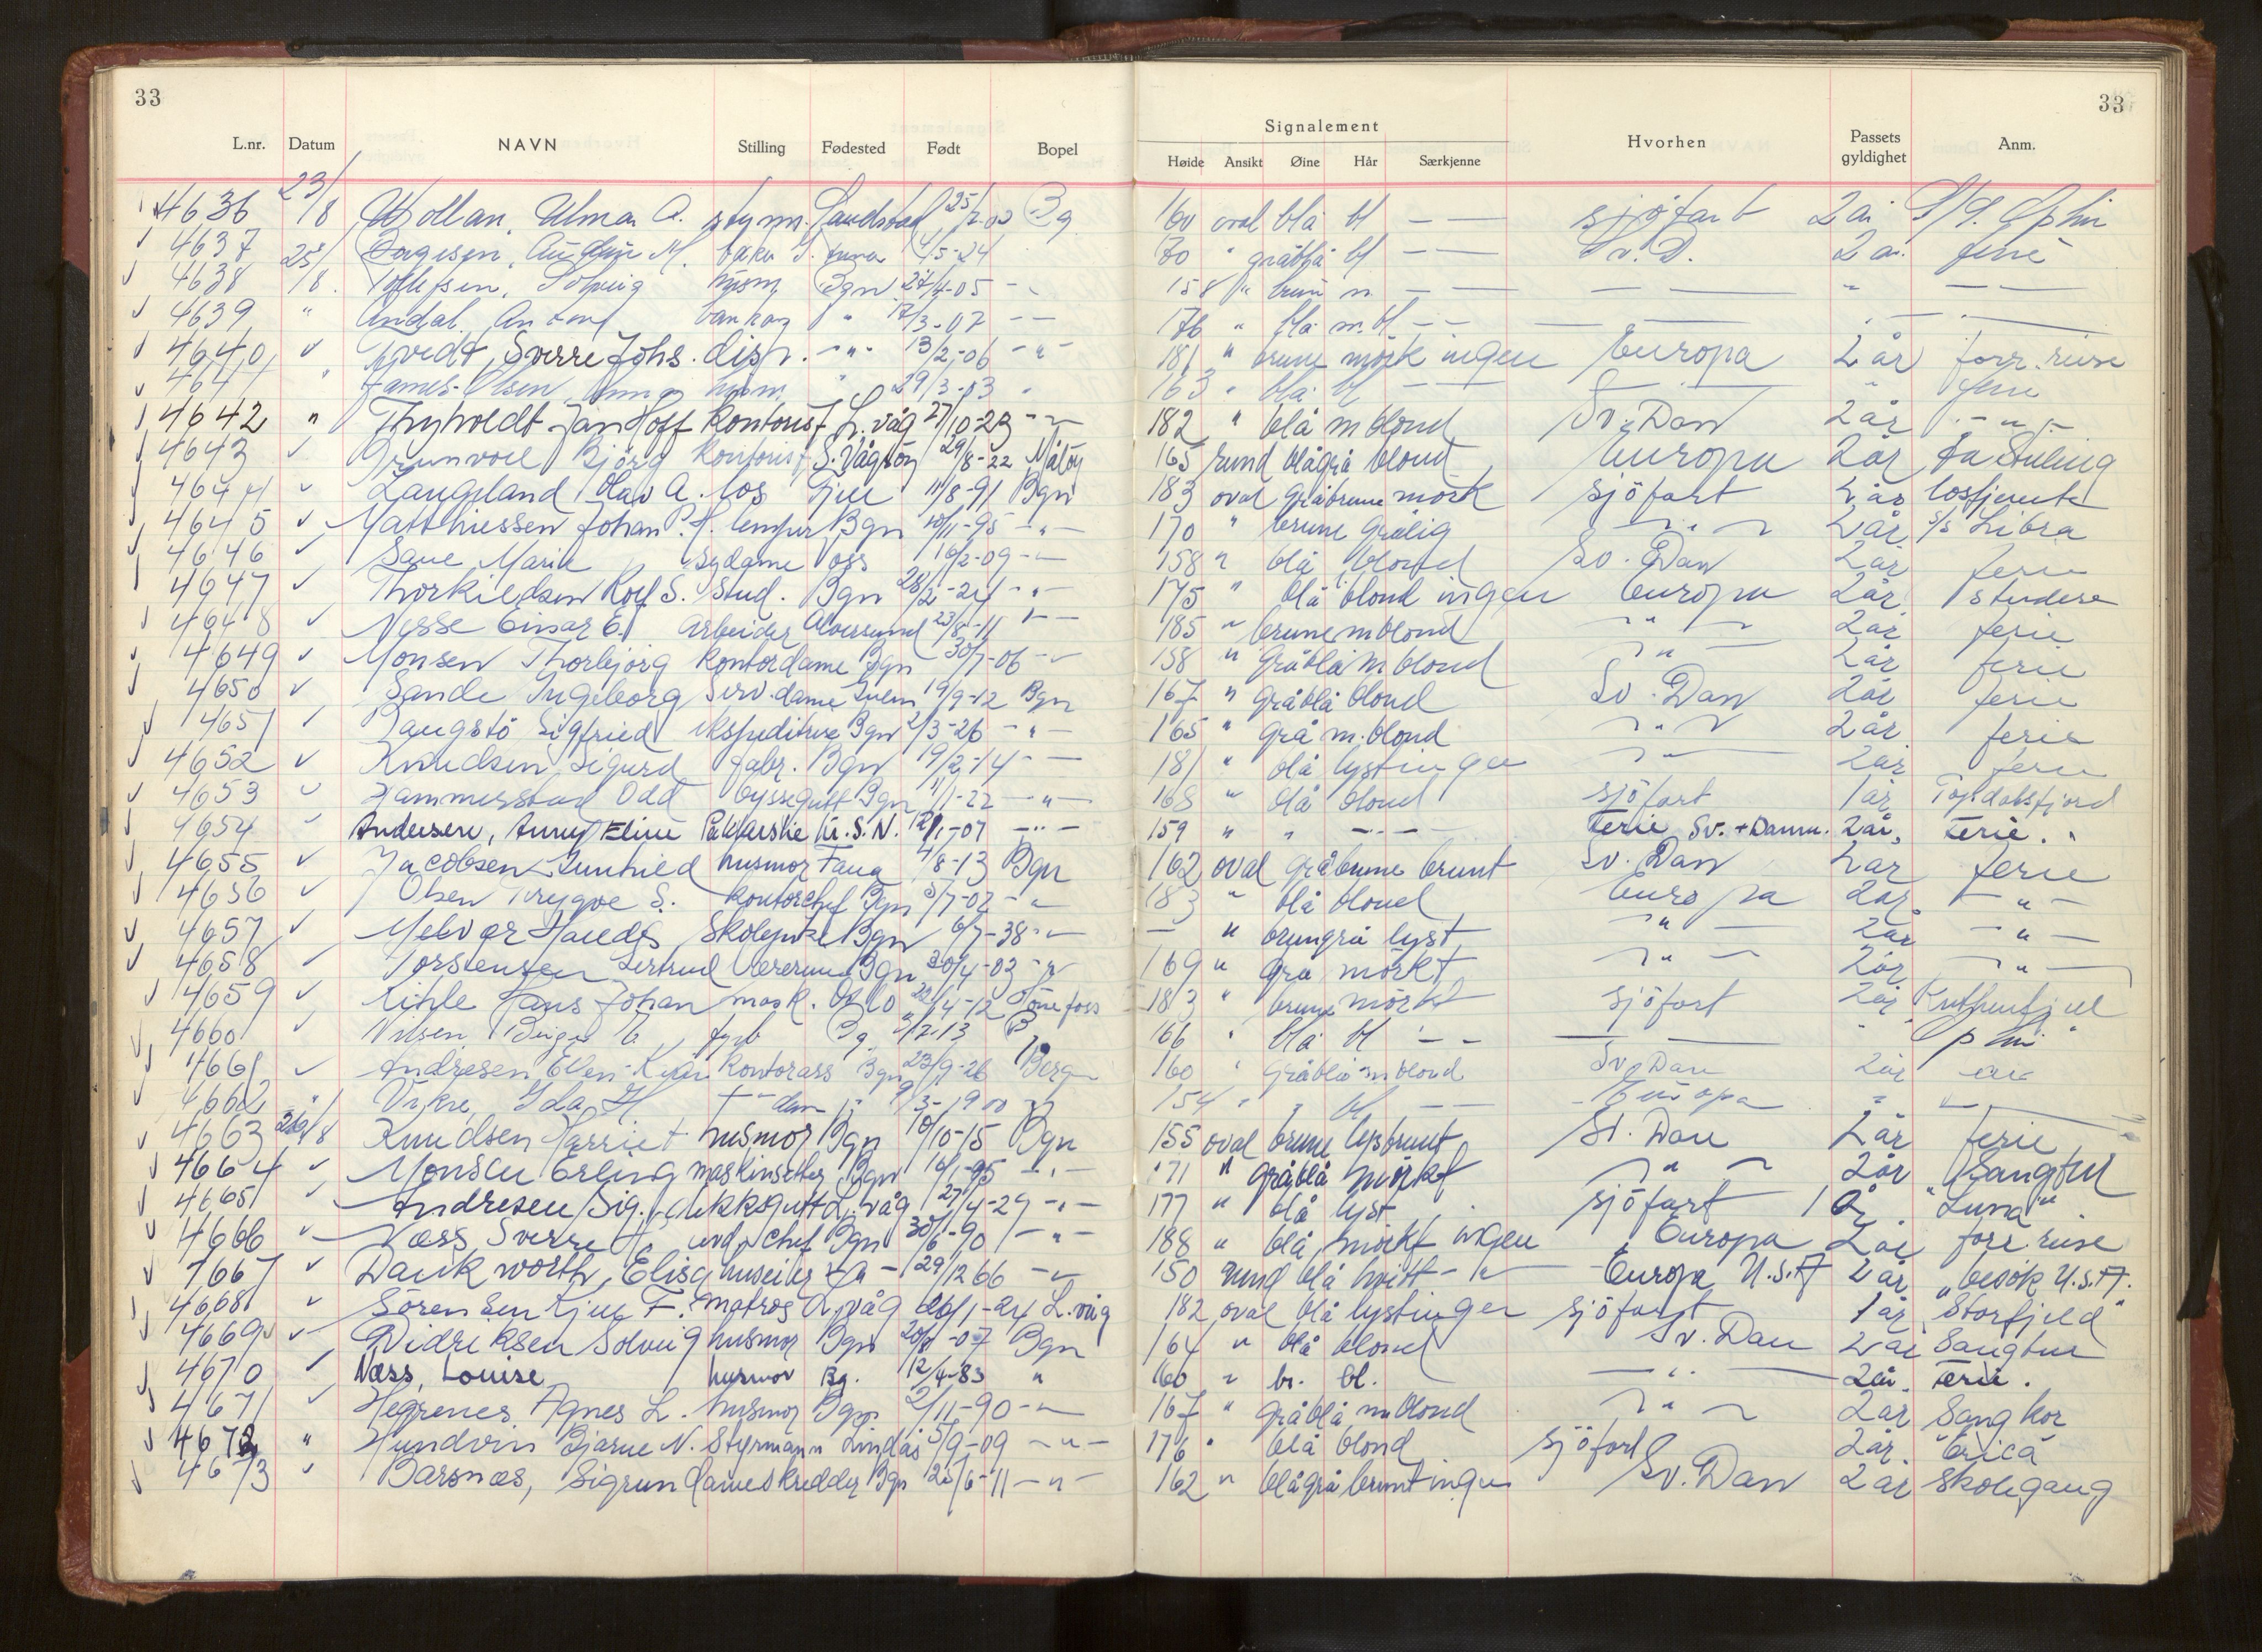 33
33
L.nr. Datum NAVN Stilling Fødested Født Bopel
Signalement
Høide Ansikt Øine Hår Særkjenne Hvorhen Passets gyldighet Anm.
4636 23/8 Wollan, Ulman A. styrm. 25/7-02 Bg 160 oval blå bl — — sjöfart 2 år
4637 25/8 M. 4/5-24 " gråblå bl — — Sv. D. 2 år ferie
4638 Tollefsen, Solveig husm Bgn 27/4-05 -"- 158 " brun m. — — — " —
4639 " Andal, " 17/3-07 — 176 " blå m.bl — — —
4640 " Tvedt, Sverre Johs. disp. -"- 13/2-06 -"- 181 " brune mörk ingen Europa 2 år forr. reise
4641 " James-Olsen, Anna husm " 29/3-03 " 163 " blå bl — — " ferie
4642 " Thyholdt Jan Hoff kontorist L. våg 27/10-23 -"- 182 " blå m blond Sv. Dan 2 år -"-
4643 " Grunvoll Bjørg kontorist S. Vågsöy 29/8-22 Målöy 165 rund blågrå blond Europa 2 år
4644 " Langeland Olav A. los Fjell 11/8-91 Bgn 183 oval gråbrune mörk sjöfart 2 år lostjeneste
4645 " Matthiessen Johan P. H. Bgn 10/11-95 -"- 170 " brune grålig -"- 2 år s/s Libra
4646 " Saue Marie sydame Voss 16/2-09 -"- 158 " blå blond Sv. Dan 2 år ferie
4647 " Thorkildsen Rolf S. stud. Bgn 28/2-24 -"- 175 " blå blond ingen Europa 2 år studere
4648 " Nesse Einar E. arbeider Alversund 23/8-11 -"- 185 " brune m blond -"- 2 år ferie
4649 " Monsen Thorbjörg kontordame Bgn 30/7-06 -"- 158 " gråblå m blond -"- 2 år ferie
4650 " Sande Ingeborg serv.dame Gulen 19/9-12 Bgn 167 " gråblå blond Sv. Dan 2 år ferie
4651 " Raugstö Sigfried ekspeditrise Bgn 2/3-26 -"- 165 " grå m. blond -"- 2 år ferie
4652 " Knudsen Sigurd fabr. Bgn 19/2-14 -"- 181 " blå lyst ingen -"- 2 år ferie
4653 " Hammerstad Odd byssegutt Bgn 11/1-22 -"- 168 " blå blond sjöfart 1 år Topdalsfjord
4654 " Andersen, Anny Eline Kr. S. N. 12/1-07 -"- 159 " " -"- Ferie Sv. + Danm. 2 år. Ferie.
4655 " Jacobsen Gunhild husmor Fana 4/8-13 Bgn 162 oval gråbrune brunt Sv. Dan 2 år ferie
4656 " Olsen Trygve S. kontorchef Bgn 5/7-02 -"- 183 " blå blond Europa 2 år -"-
4657 " Melvær Handis skolepike Bgn 6/7-38 -"- — " brungrå lyst -"- 2 år -"-
4658 " Torstensen Gertrud lærerinne Bgn 30/4-03 -"- 169 " grå mörkt -"- 2 år -"-
4659 " Kihle Hans Johan mask. Oslo 22/4-12 Hönefoss 183 " brune mörkt sjöfart 2 år
4660 " Nilsen Birger E. fyrb Bg. 2/2-13 B 166 " blå bl — — — "
4661 " Andresen Ellen-Karin kontorass Bgn 23/9-26 Berg 160 " gråblå m blond Sv. Dan 2 år
4662 " Vikre, Ida H 9/3-1900 -"- 154 " " bl — — Europa " "
4663 26/8 Knudsen Harriet husmor Bgn 10/10-15 Bgn 155 oval brune lysbrunt Sv. Dan 2 år ferie
4664 " Monsen Erling maskinsetter Bgn 16/1-95 -"- 171 " gråblå mörkt -"- 2 år Sangtur
4665 " Andresen Sig. dekksgutt L. våg 27/4-29 -"- 177 " blå lyst sjöfart 1 år "Luna"
4666 " Næss Sverre underv. chef Bgn 30/6-90 -"- 188 " blå mörkt ingen Europa 2 år forr. reise
4667 " Dankworth, Elisa huseier 29/12 66 -"- 150 rund blå hvitt -"- Europa U.S.A 2 år besök U.S.A.
4668 " Sörensen Kjell F. matros L. våg 26/1-24 L. våg 182 oval blå lyst ingen sjöfart 1 år "Storfjeld"
4669 " Didriksen Solveig husmor Bgn 20/8-07 Bgn 164 " blå blond Sv. Dan 2 år Sangtur
4670 " Næss, Louise husmor Bg. 12/4-83 " 160 " br. bl. -"- 2 år. Ferie.
4671 " Hegrenes, Agnes L. husmor Bgn 2/11-90 -"- 167 " gråblå m blond -"- 2 år Sangkor
4672 " Hundvin Bjarne N. Styrmann Lindås 5/9-09 -"- 176 " blå blond sjöfart 2 år. "Erica"
4673 " Barsnæs, Sigrun dameskredder Bgn 25/6-11 -"- 162 " blågrå brunt ingen Sv. Dan 2 år Skolegang